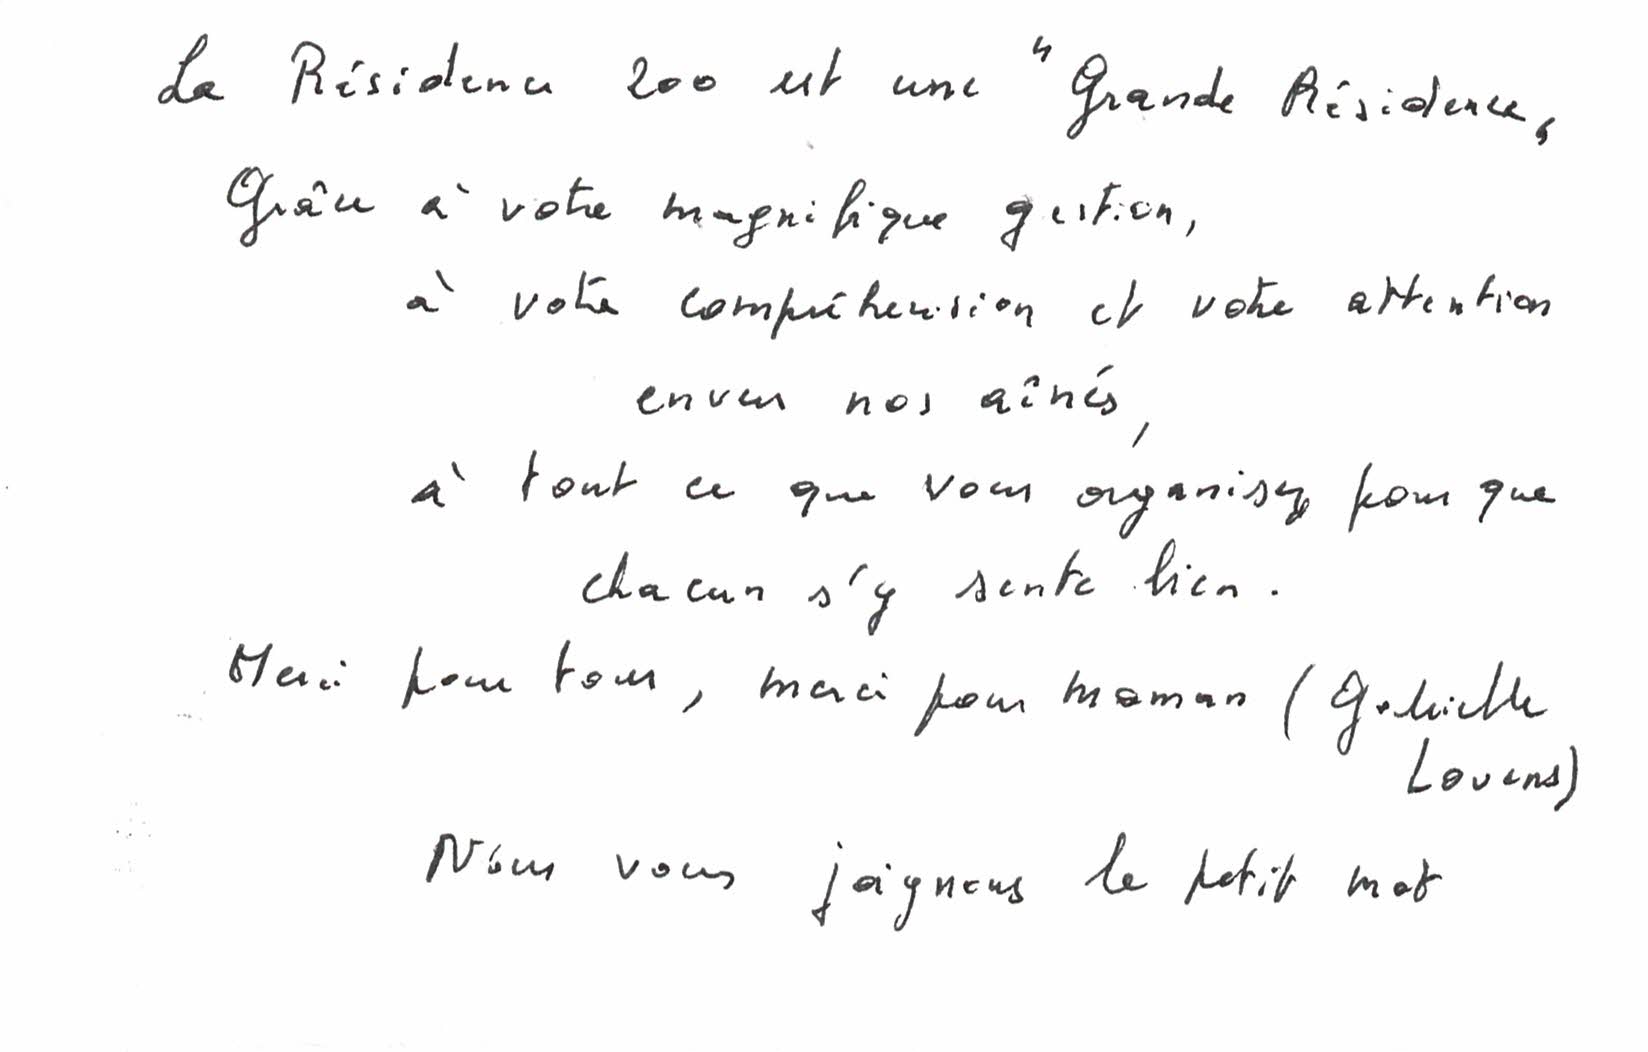 La Résidence 200 est une "Grande Résidence,
Grâce à votre magnifique gestion,
à votre compréhension et votre attention
envers nos aînés,
à tout ce que vous organisez pour que
chacun s'y sente bien.
Merci pour tous, merci pour maman (Gabrielle
Lovens)
Nous vous joignons le petit mot